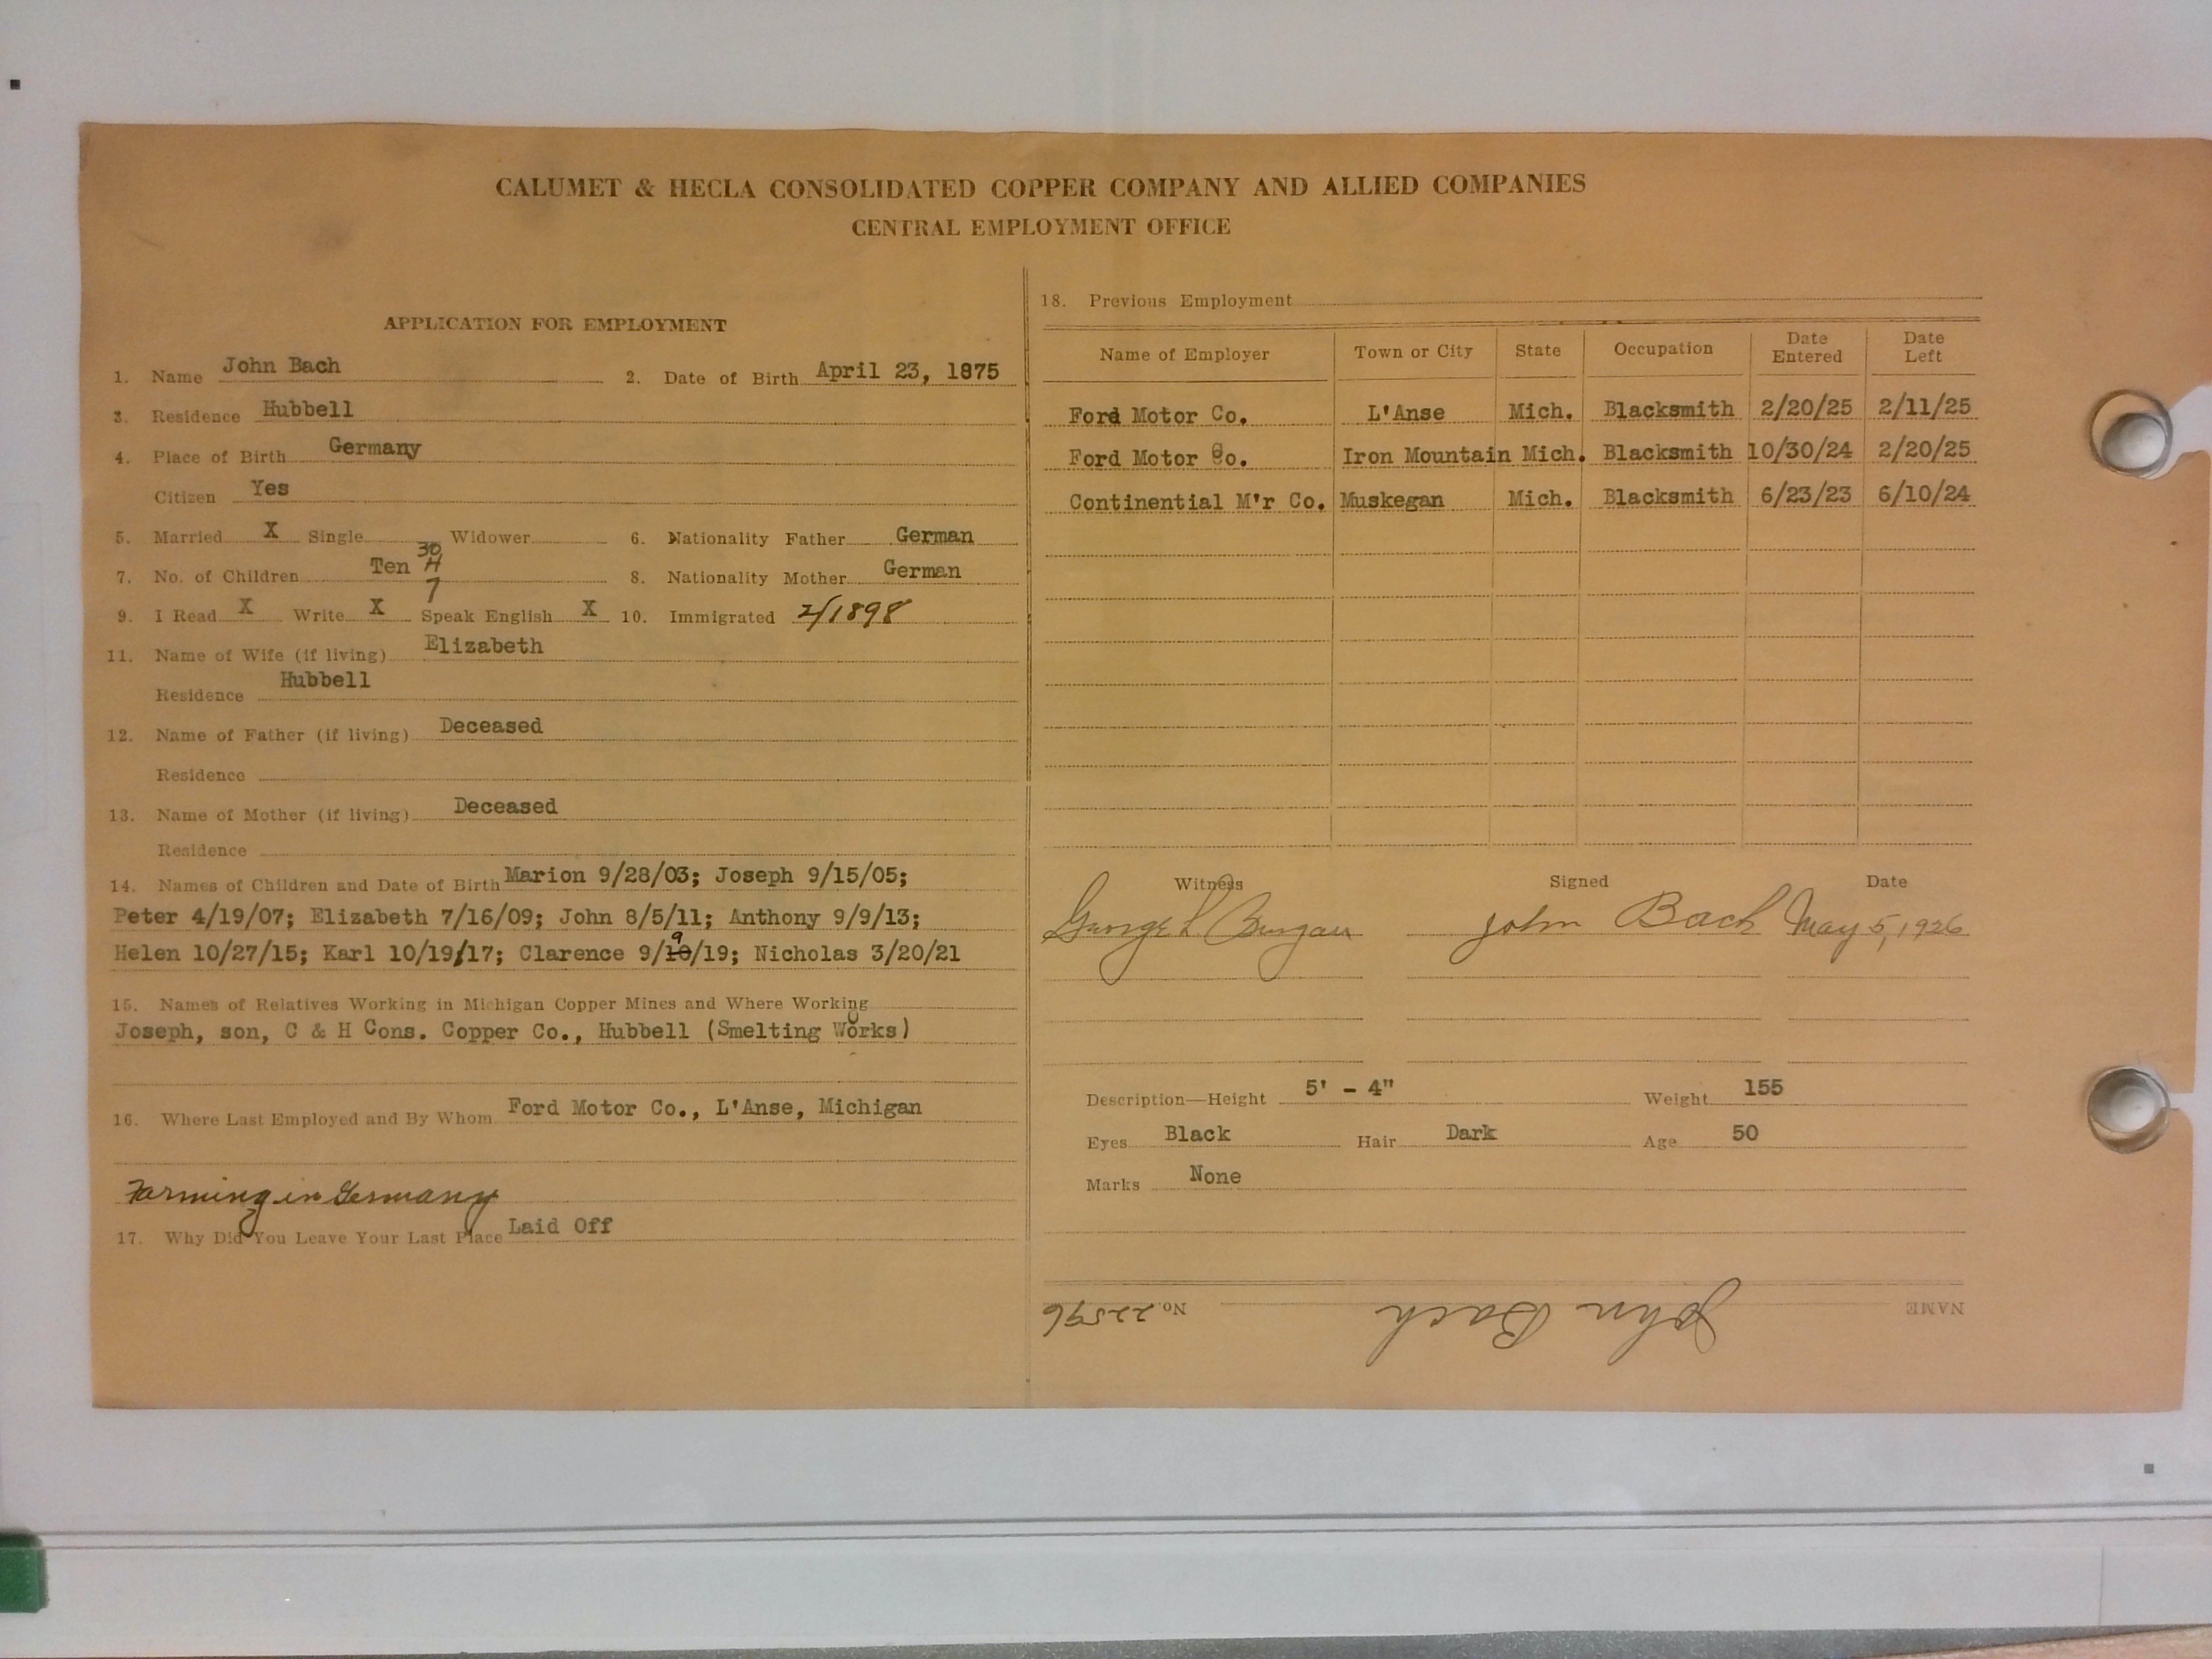 CALUMET & HECLA CONSOLIDATED COPPER COMPANY AND ALLIED COMPANIES
CENTRAL EMPLOYMENT OFFICE
APPLICATION FOR EMPLOYMENT
1. Name John Bach 2. Date of Birth April 23, 1875
3. Residence Hubbell
4. Place of Birth Germany
Citizen Yes
5. Married X Single Widower 6. Nationality Father German
7. No. of Children Ten 8. Nationality Mother German
9. I Read X Write X Speak English X 10. Immigrated 2/1898
11. Name of Wife (if living) Elizabeth
Residence Hubbell
12. Name of Father (if living) Deceased
Residence
13. Name of Mother (if living) Deceased
Residence
14. Names of Children and Date of Birth Marion 9/28/03; Joseph 9/15/05;
Peter 4/19/07; Elizabeth 7/16/09; John 8/5/11; Anthony 9/9/13;
Helen 10/27/15; Karl 10/19/17; Clarence 9/9/19; Nicholas 3/20/21
15. Names of Relatives Working in Michigan Copper Mines and Where Working
Joseph, son, C & H Cons. Copper Co., Hubbell (Smelting Works)
16. Where Last Employed and By Whom Ford Motor Co., L'Anse, Michigan
Farming in Germany
17. Why Did You Leave Your Last Place Laid Off
18. Previous Employment
Name of Employer Town or City State Occupation Date Entered Date Left
Ford Motor Co. L'Anse Mich. Blacksmith 2/20/25 2/11/25
Ford Motor Co. Iron Mountain Mich. Blacksmith 10/30/24 2/20/25
Continential M'r Co. Muskegan Mich. Blacksmith 6/23/23 6/10/24
Witness Signed Date
George L John Bach May 5, 1926
Description—Height 5' - 4" Weight 155
Eyes Black Hair Dark Age 50
Marks None
NAME John Bach No. 22596